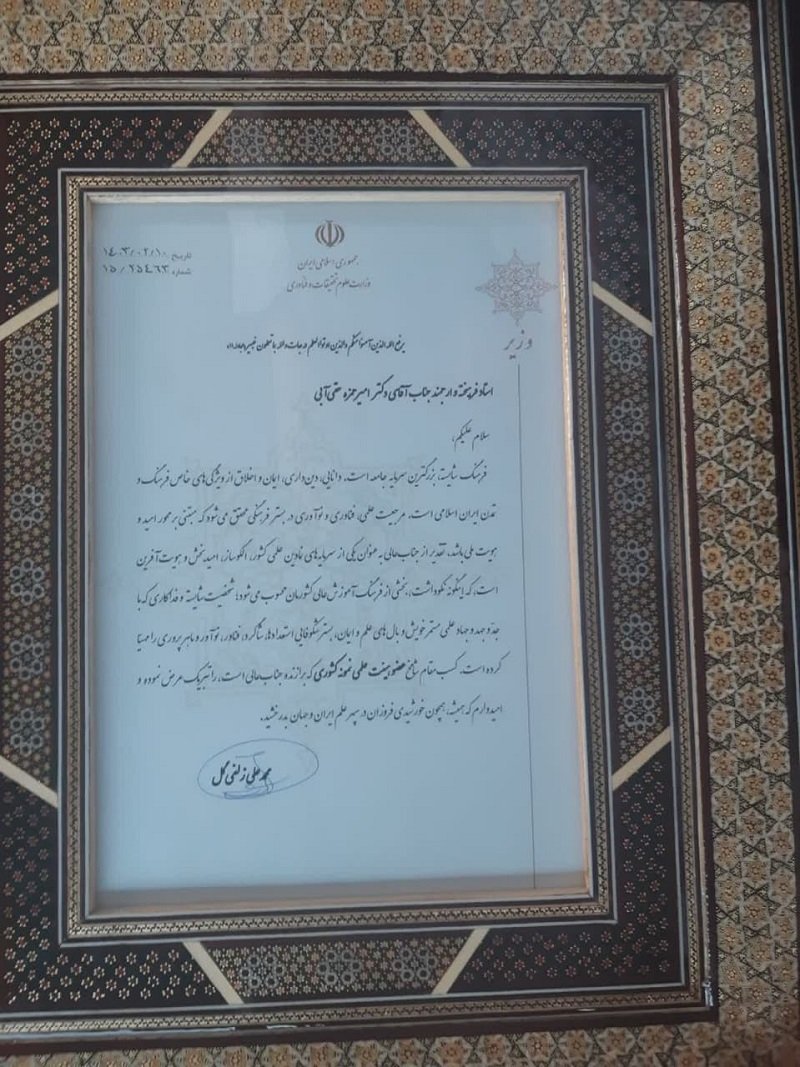 جمهوری اسلامی ایران
وزارت علوم تحقیقات و فناوری
تاریخ ۱۴۰۳/۰۲/۱۰
شماره ۱۵/۲۵۴۶۳
وزیر
یرفع الله الذین آمنوا منکم والذین اوتوا العلم درجات والله بما تعملون خبیر
استاد فرهیخته و ارجمند جناب آقای دکتر امیرحمزه حقی‌آبی
سلام علیکم،
فرهنگ شایسته، بزرگترین سرمایه جامعه است. دانایی، دین‌داری، ایمان و اخلاق از ویژگی‌های خاص فرهنگ و
تمدن ایران اسلامی است. مرجعیت علمی، فناوری و نوآوری در بستر فرهنگی محقق می‌شود که مبتنی بر محور امید و
هویت ملی باشد. تقدیر از جناب‌عالی به عنوان یکی از سرمایه‌های نمادین علمی کشور، الگوساز، امیدبخش و هویت آفرین
است، که اینگونه نکوداشت، بخشی از فرهنگ آموزش عالی کشورمان محسوب می‌شود؛ شخصیت شایسته و فداکاری که با
جد و جهد و جهاد علمی مستمر خویش و بال‌های علم و ایمان، بستر شکوفایی استعدادها، شاگرد، فناور، نوآور و ماهر پروری را مهیا
کرده است. کسب مقام شامخ عضو هیئت علمی نمونه کشوری که برازنده جناب‌عالی است، را تبریک عرض نموده و
امیدوارم که همیشه، همچون خورشیدی فروزان در سپهر علم ایران و جهان بدرخشید.
محمدعلی زلفی‌گل